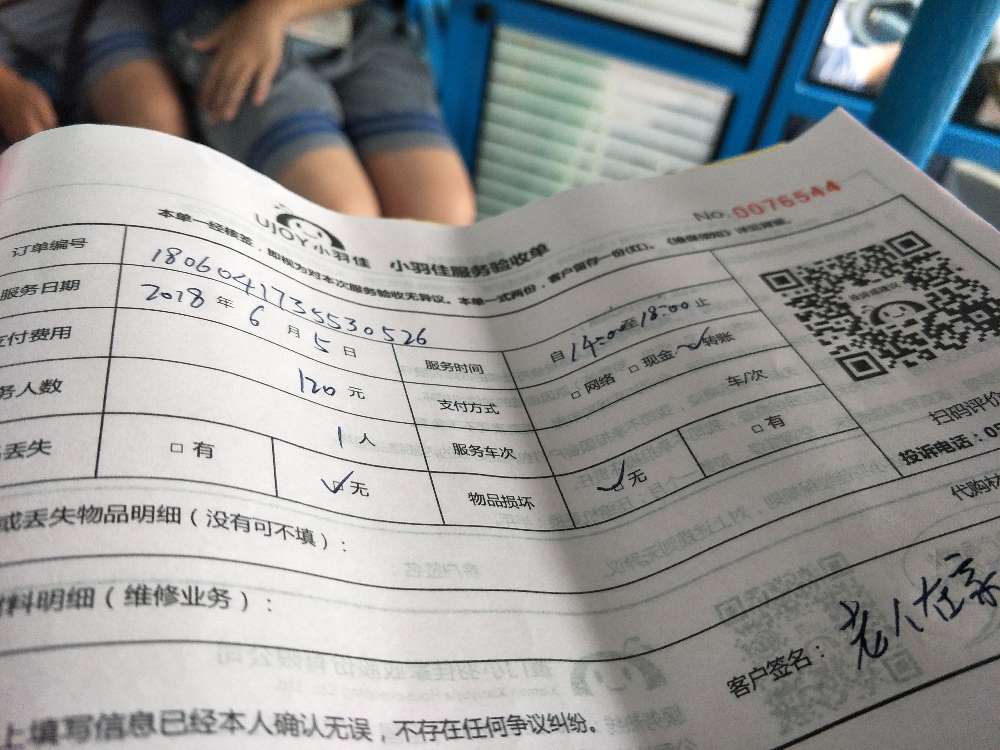 No.0076544
UJOY小羽佳 小羽佳服务验收单
本单一经接签，即视为对本次服务验收无异议。本单一式两份，客户留存一份(红)。
订单编号 1806041735530526
服务日期 2018年6月5日 服务时间 自14:00至18:00止
支付费用 120元 支付方式 □网络 □现金 转账
务人数 1人 服务车次 车/次
丢失 □有 □无 物品损坏 □无 □有
扫码评价
投诉电话：05
或丢失物品明细（没有可不填）：
代购材
料明细（维修业务）：
客户签名：老人在家
上填写信息已经本人确认无误，不存在任何争议纠纷。